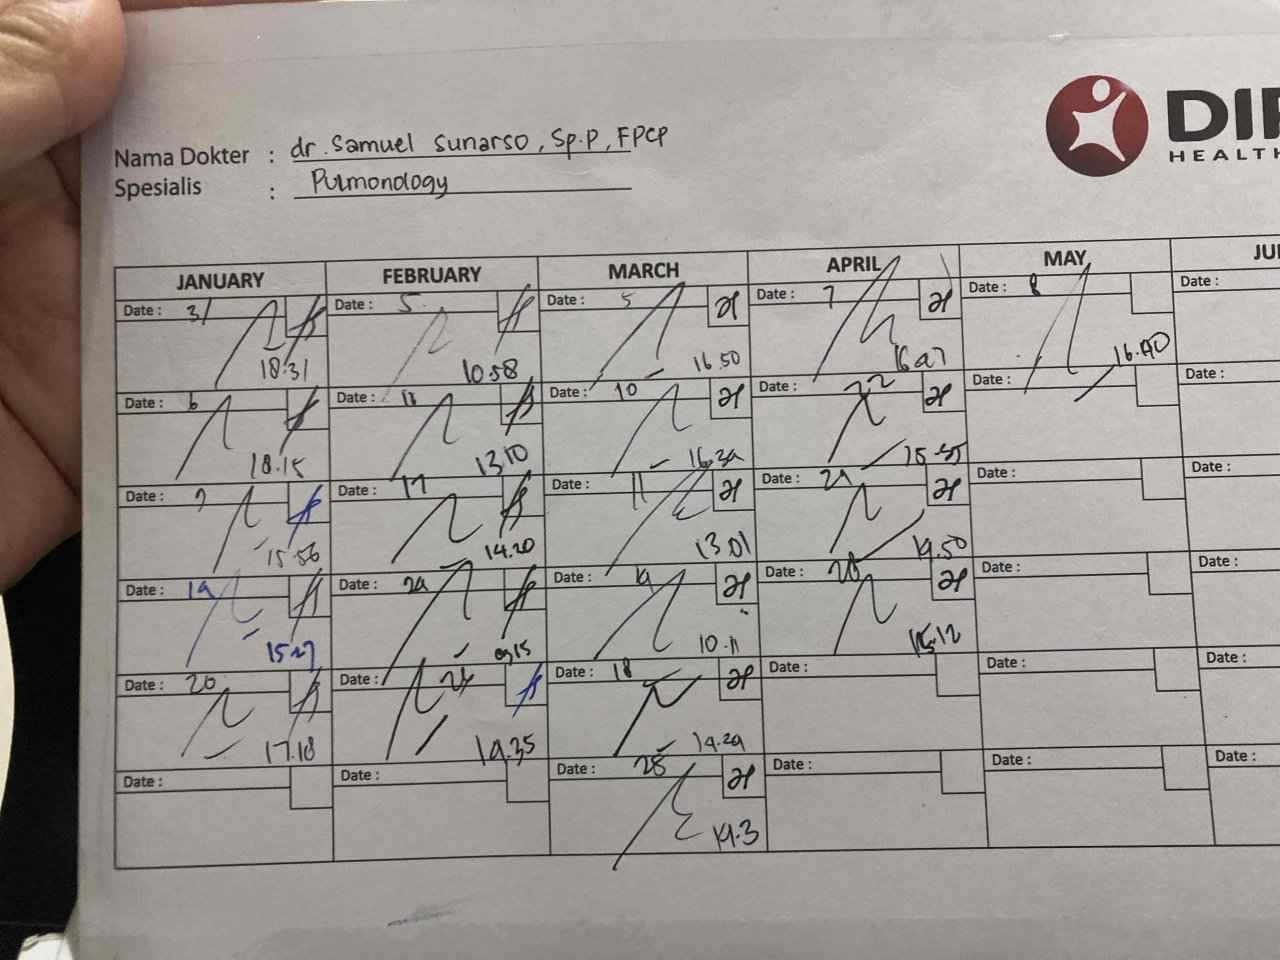 Nama Dokter : dr. Samuel Sunarso, Sp.P, FPCP
Spesialis : Pulmonology
DIP
HEALTH
JANUARY FEBRUARY MARCH APRIL MAY JU
Date : 31 Date : 5 Date : 5 Date : 7 Date : 8 Date :
18.31 10.58 16.50 16.47 16.40
Date : 6 Date : 11 Date : 10 Date : 22 Date : Date :
18.15 13.10 16.39
Date : 7 Date : 17 Date : 11 Date : 21 Date : Date :
15.56 14.20 13.01 14.50
Date : 14 Date : 24 Date : 14 Date : Date : Date :
15.27 09.15 10.11 15.12
Date : 20 Date : Date : 18 Date : Date : Date :
17.18 14.35 14.29
Date : Date : Date : 25 Date : Date : Date :
14.3